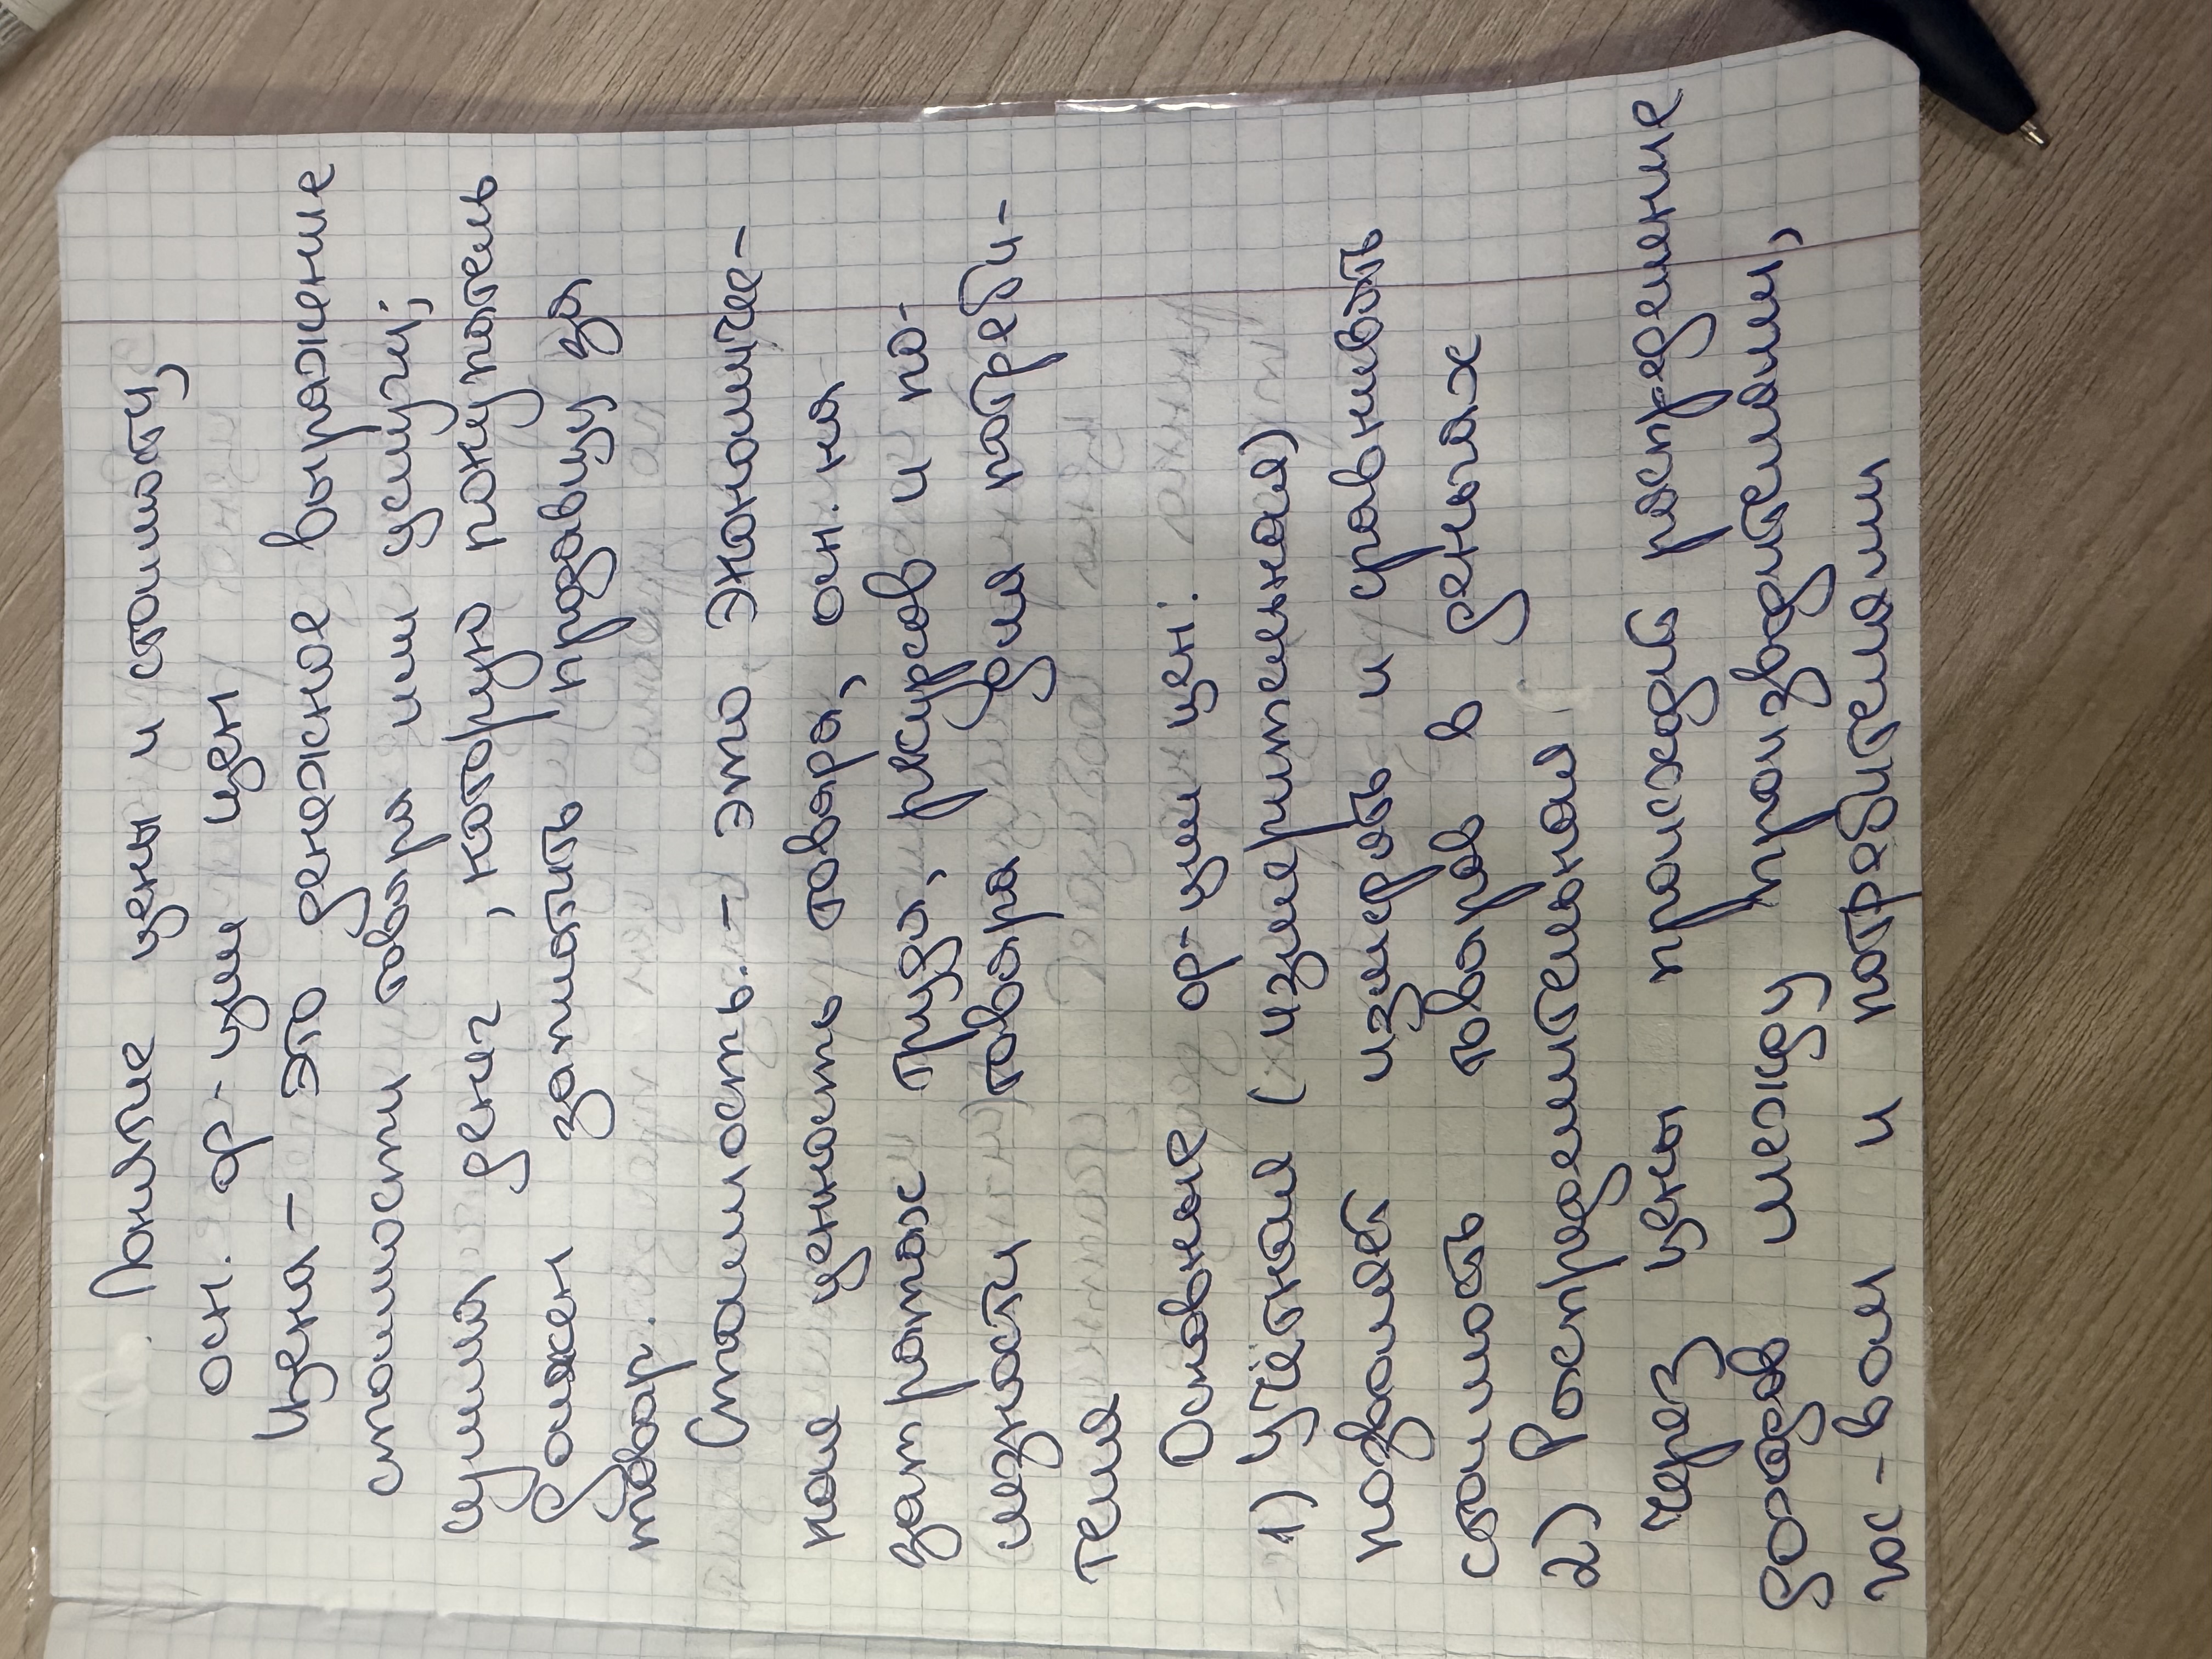 Понятие цены и стоимости,
осн. ф-ции цен
Цена – это денежное выражение
стоимости товара или услуги;
сумма денег, которую покупатель
должен заплатить продавцу за
товар.
Стоимость. – это экономиче-
ная ценность товара, осн. на
затратах труда, ресурсов и по-
лезности товара для потреби-
теля
Основные ф-ции цен:
1) Учётная (измерительная)
позволяет измерять и сравнивать
стоимость товаров в деньгах
2) Распределительная
Через цены происходит распределение
доходов между производителями,
гос-вом и потребителями